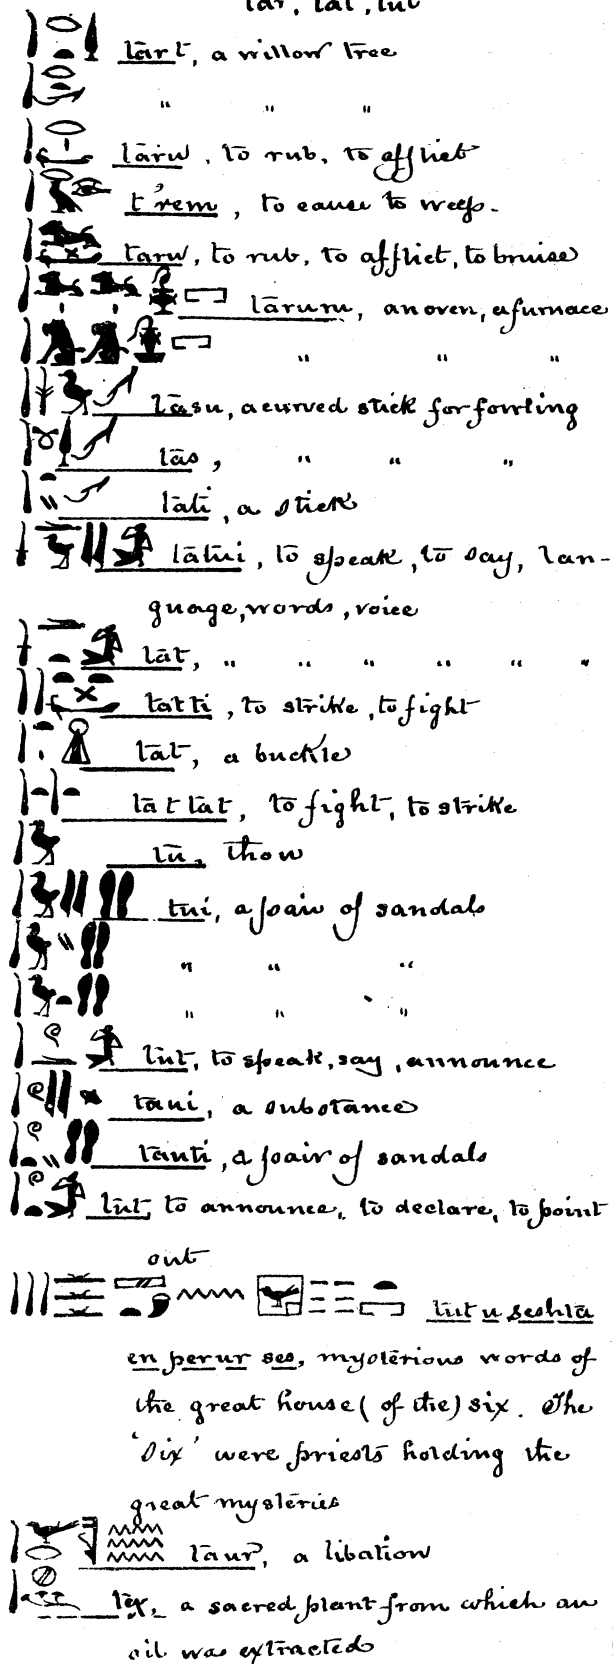 tar, tat, tut
tart, a willow tree
" " "
taru, to rub, to afflict
t'rem, to cause to weep.
taru, to rub, to afflict, to bruise
tārum, an oven, a furnace
" " "
tāsu, a curved stick for fowling
tās, " " "
tāti, a stick
tātui, to speak, to say, lan-
guage, words, voice
tāt, " " " " " "
tatti, to strike, to fight
tāt, a buckle
tāt tāt, to fight, to strike
tū, thou
tui, a pair of sandals
" " "
" " "
tūt, to speak, say, announce
taui, a substance
tauti, a pair of sandals
tūt, to announce, to declare, to point
out
tut u seshta
en per ur ses, mysterious words of
the great house (of the) six. The
'Six' were priests holding the
great mysteries
taur, a libation
tex, a sacred plant from which an
oil was extracted